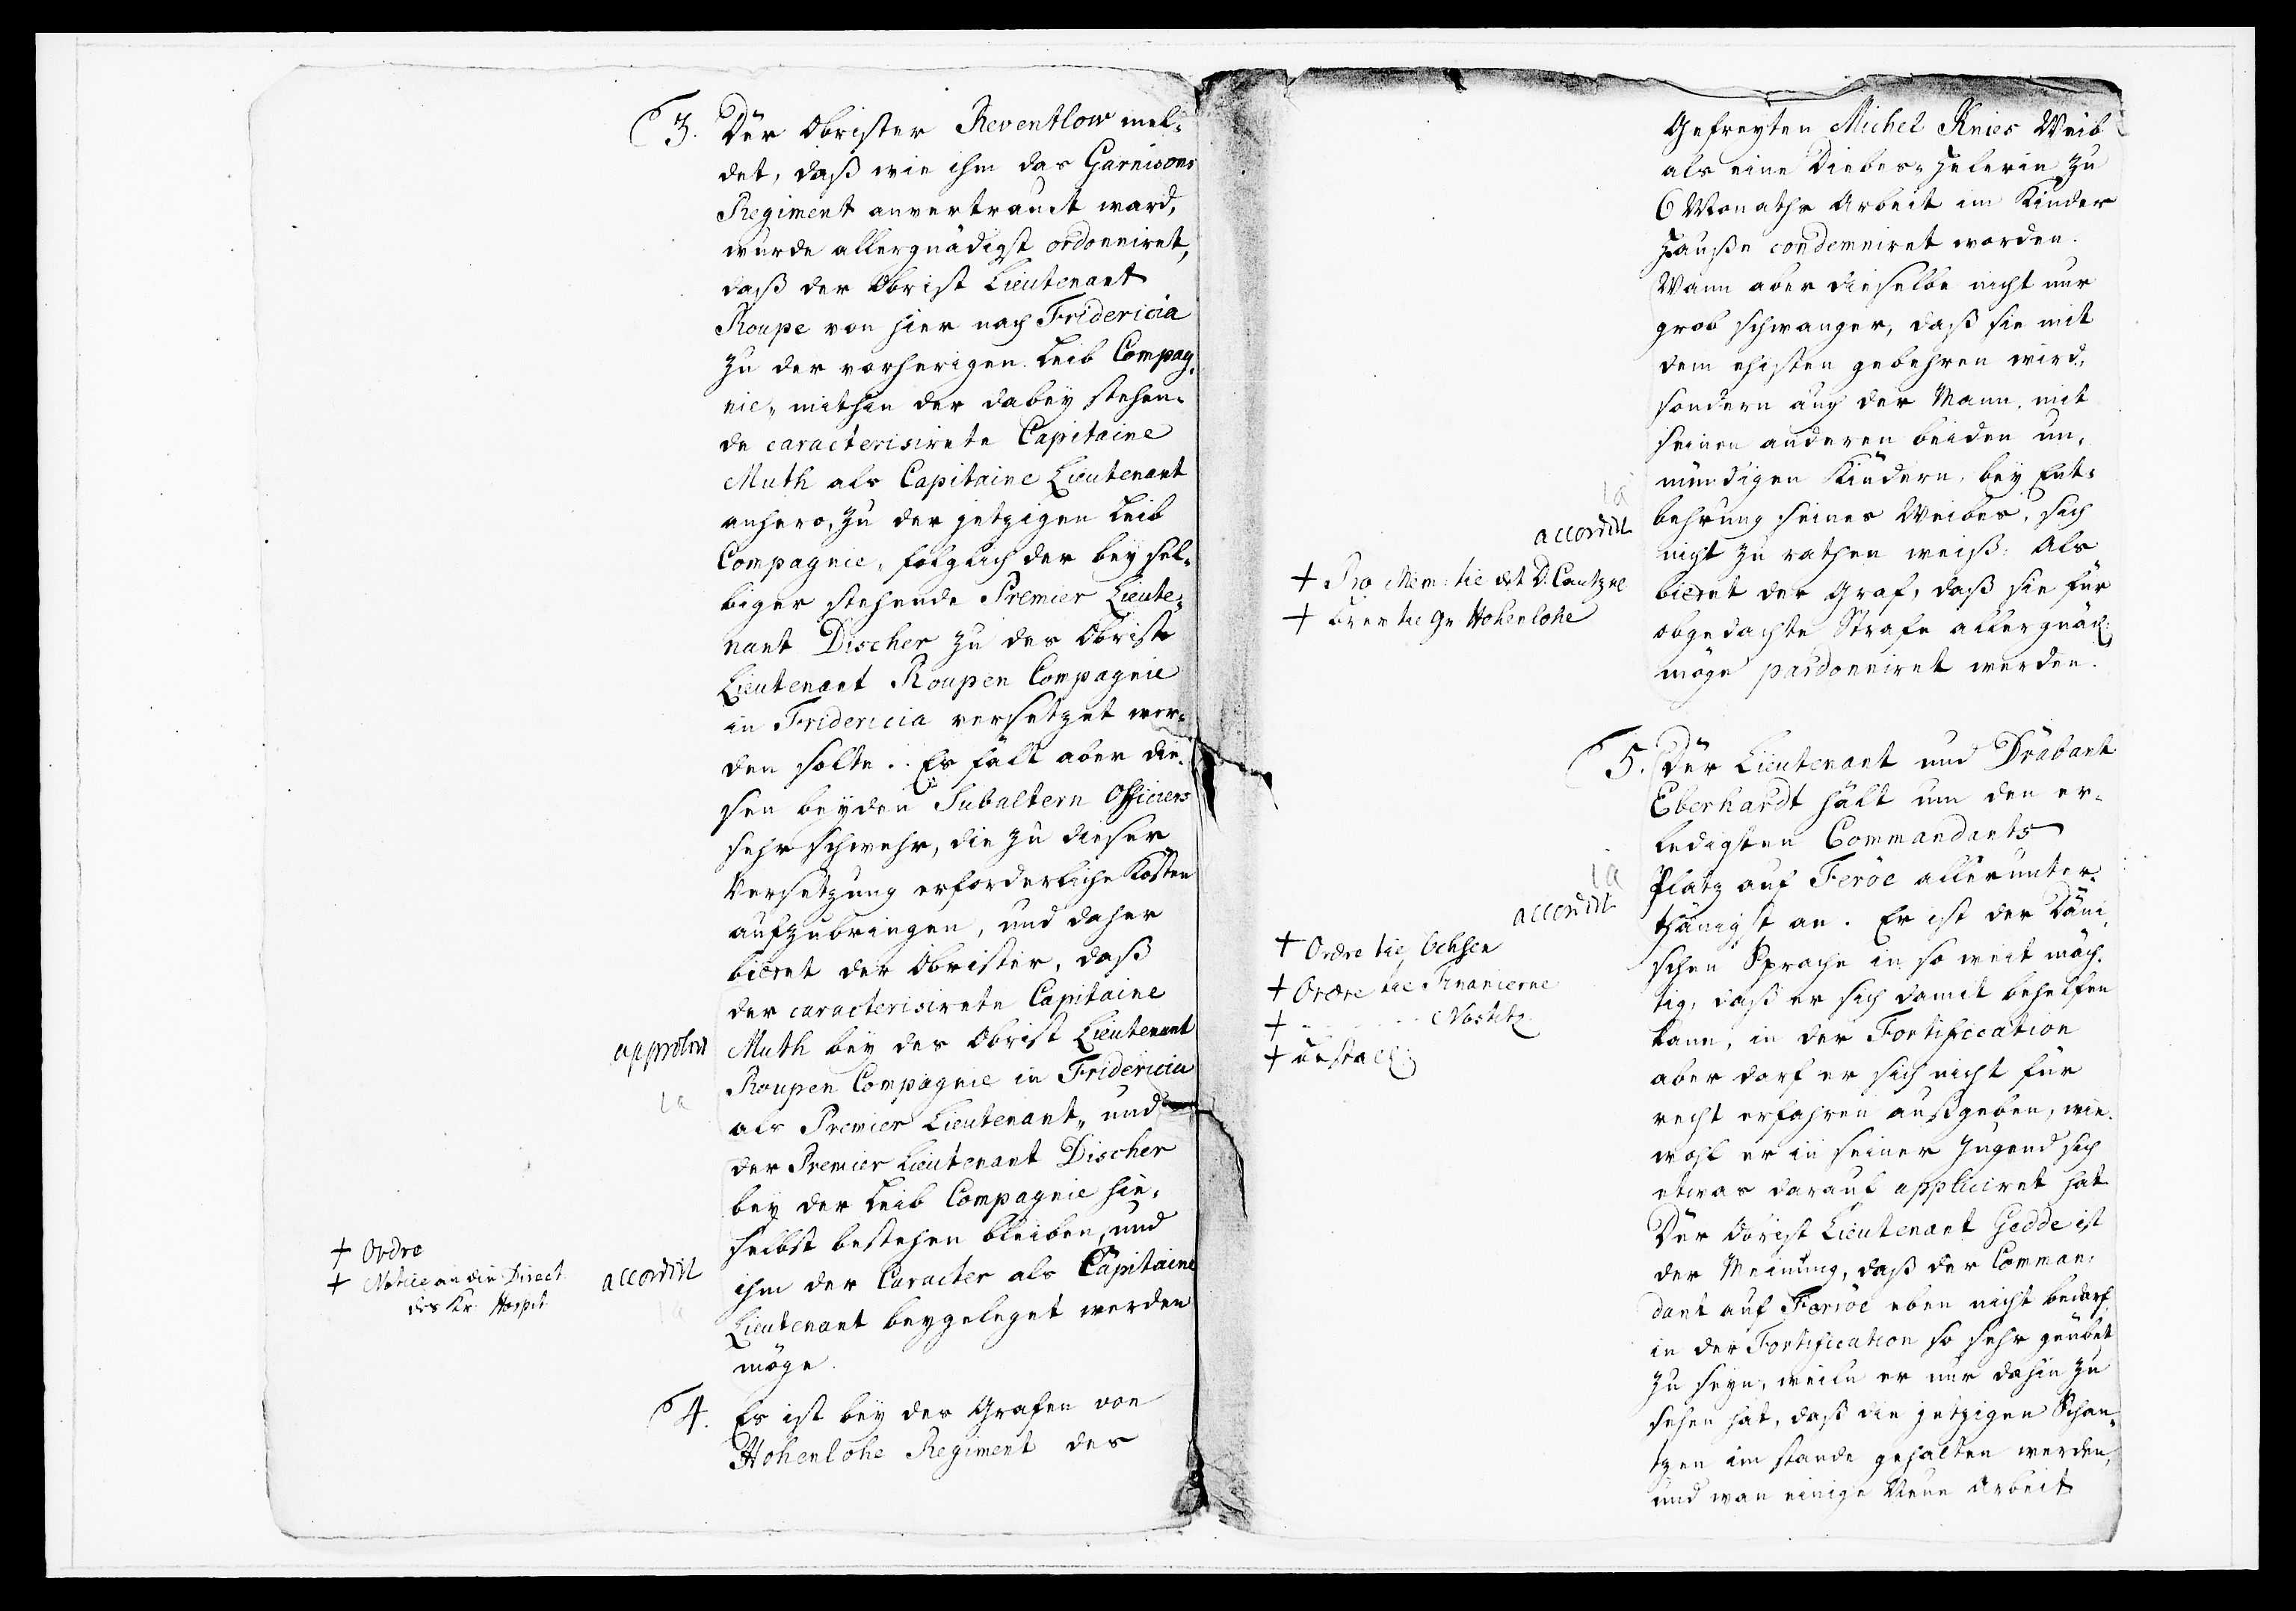 3. Der Obrister Reventlow mel-
det, daß wie ihm das Garnisons
Regiment anvertrauet ward,
wurde allergnädigst ordonniret,
daß der Obrist Lieutenant
Roupe von hier nach Fridericia
zu der vorherigen Leib Compag-
nie, mithin der dabey stehen-
de caracterisirete Capitaine
Muth als Capitaine Lieutenant
anhero, zu der jetzigen Leib
Compagnie, folglich der bey sel-
biger stehende Premier Lieute-
nant Discher zu des Obrist
Lieutenant Roupen Compagnie
in Fridericia versetzet wer-
den solte. Es fält aber die-
sen beyden Subaltern Officiers
sehr schwehr, die zu dieser
Versetzung erforderliche Kosten
aufzubringen, und daher
bietet der Obrister, daß
der caracterisirete Capitaine
approbirt
Muth bey des Obrist Lieutenant
Roupen Compagnie in Fridericia
ia
als Premier Lieutenant, und
der Premier Lieutenant Discher
bey der Leib Compagnie hie-
selbst bestehen bleiben, und
+ Ordre
+ Notice an die Direct.
des Kr. Hospit
accordirt
ia
ihm der Caracter als Capitaine
Lieutenant beygeleget werden
möge.
4. Es ist bey des Grafen von
Hohenlohe Regiment des
Gefreyten Michel Knies Weib
als eine Diebes-Helerin zu
6 Monaths Arbeit im Kinder
Hause condemniret worden.
Wann aber dieselbe nicht nur
grob schwanger, daß sie mit
dem ehisten gebehren wird,
sondern auch der Mann, mit
seinen anderen beiden un-
mündigen Kindern, bey Ent-
ia
behrung seines Weibes, sich
accordirt
nicht zu rathen weiß: Als
+ Pro Mem: til det D. Cantzel
bietet der Graf, daß sie für
+ til Gr Hohenlohe
obgedachte Strafe allergnäd:
möge pardonniret werden.
5. Der Lieutenant und Drabant
Eberhardt hält um den er-
ledigten Commandants
ia
Platz auf Feröe allerunter-
accordirt
thänigst an. Er ist der Däni-
+ Ordre til Ochsen
schen Sprache in so weit mäch-
+ Ordre til Finantzerne
tig, daß er sich damit behelfen
+ Nostitz.
kann, in der Fortification
+ Bestall:
aber dorf er sich nicht für
recht erfahren ausgeben, wie-
wohl er in seiner Jugend sich
etwas darauf appliciret hat.
Der Obrist Lieutenant Gedde ist
der Meinung, daß der Comman-
dant auf Færöe eben nicht bedarf
in der Fortification so sehr geübet
zu seyn, weiln er nur dahin zu
sehen hat, daß die jetzigen Schan-
tzen im stande gehalten werden,
und wan einige Neue Arbeit